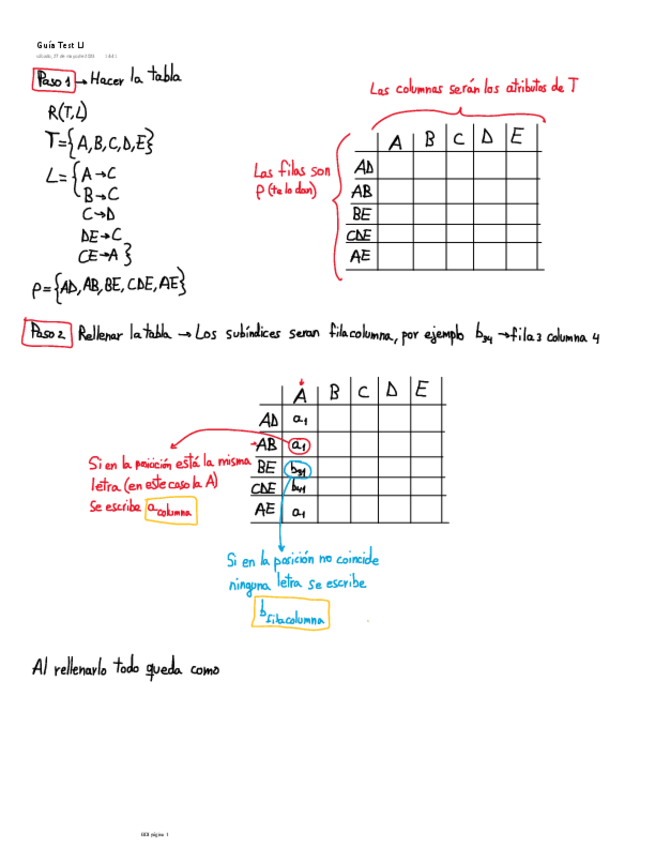 Guía Test LJ
Paso 1 → Hacer la tabla
Las columnas serán los atributos de T
R(T,L)
T={A,B,C,D,E}
L={A→C
B→C
C→D
DE→C
CE→A}
ρ={AD,AB,BE,CDE,AE}
Las filas son
ρ (te lo dan)
A B C D E
AD
AB
BE
CDE
AE
Paso 2 Rellenar la tabla → Los subíndices seran filacolumna, por ejemplo b34 → fila 3 columna 4
A B C D E
AD a1
AB a1
BE b31
CDE b41
AE a1
Si en la posición está la misma
letra (en este caso la A)
Se escribe a columna
Si en la posición no coincide
ninguna letra se escribe
b filacolumna
Al rellenarlo todo queda como
página 1